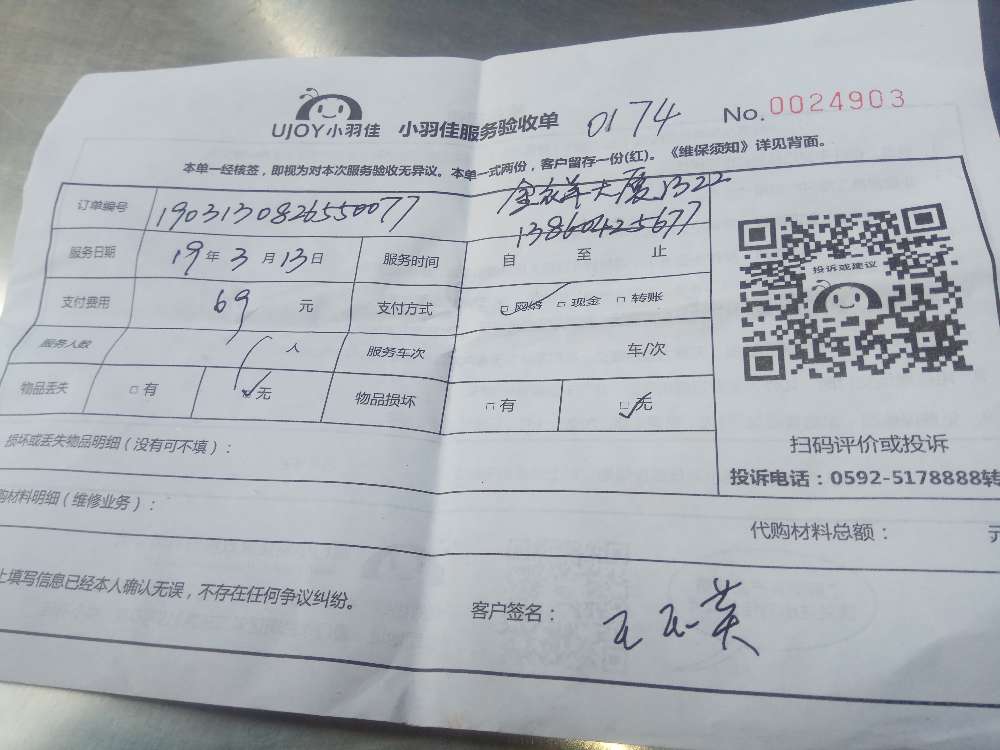 UJOY小羽佳 小羽佳服务验收单 0174 No.0024903
本单一经核签，即视为对本次服务验收无异议。本单一式两份，客户留存一份(红)。《维保须知》详见背面。
订单编号 1903130826550077 大厦1322
13860425677
服务日期 19年3月13日 服务时间 自 至 止
支付费用 69 元 支付方式 □网络 □现金 □转账
服务人数 人 服务车次 车/次
物品丢失 □有 □无 物品损坏 □有 □无
损坏或丢失物品明细（没有可不填）：
投诉或建议
扫码评价或投诉
投诉电话：0592-5178888转
购材料明细（维修业务）： 代购材料总额： 元
上填写信息已经本人确认无误，不存在任何争议纠纷。 客户签名：